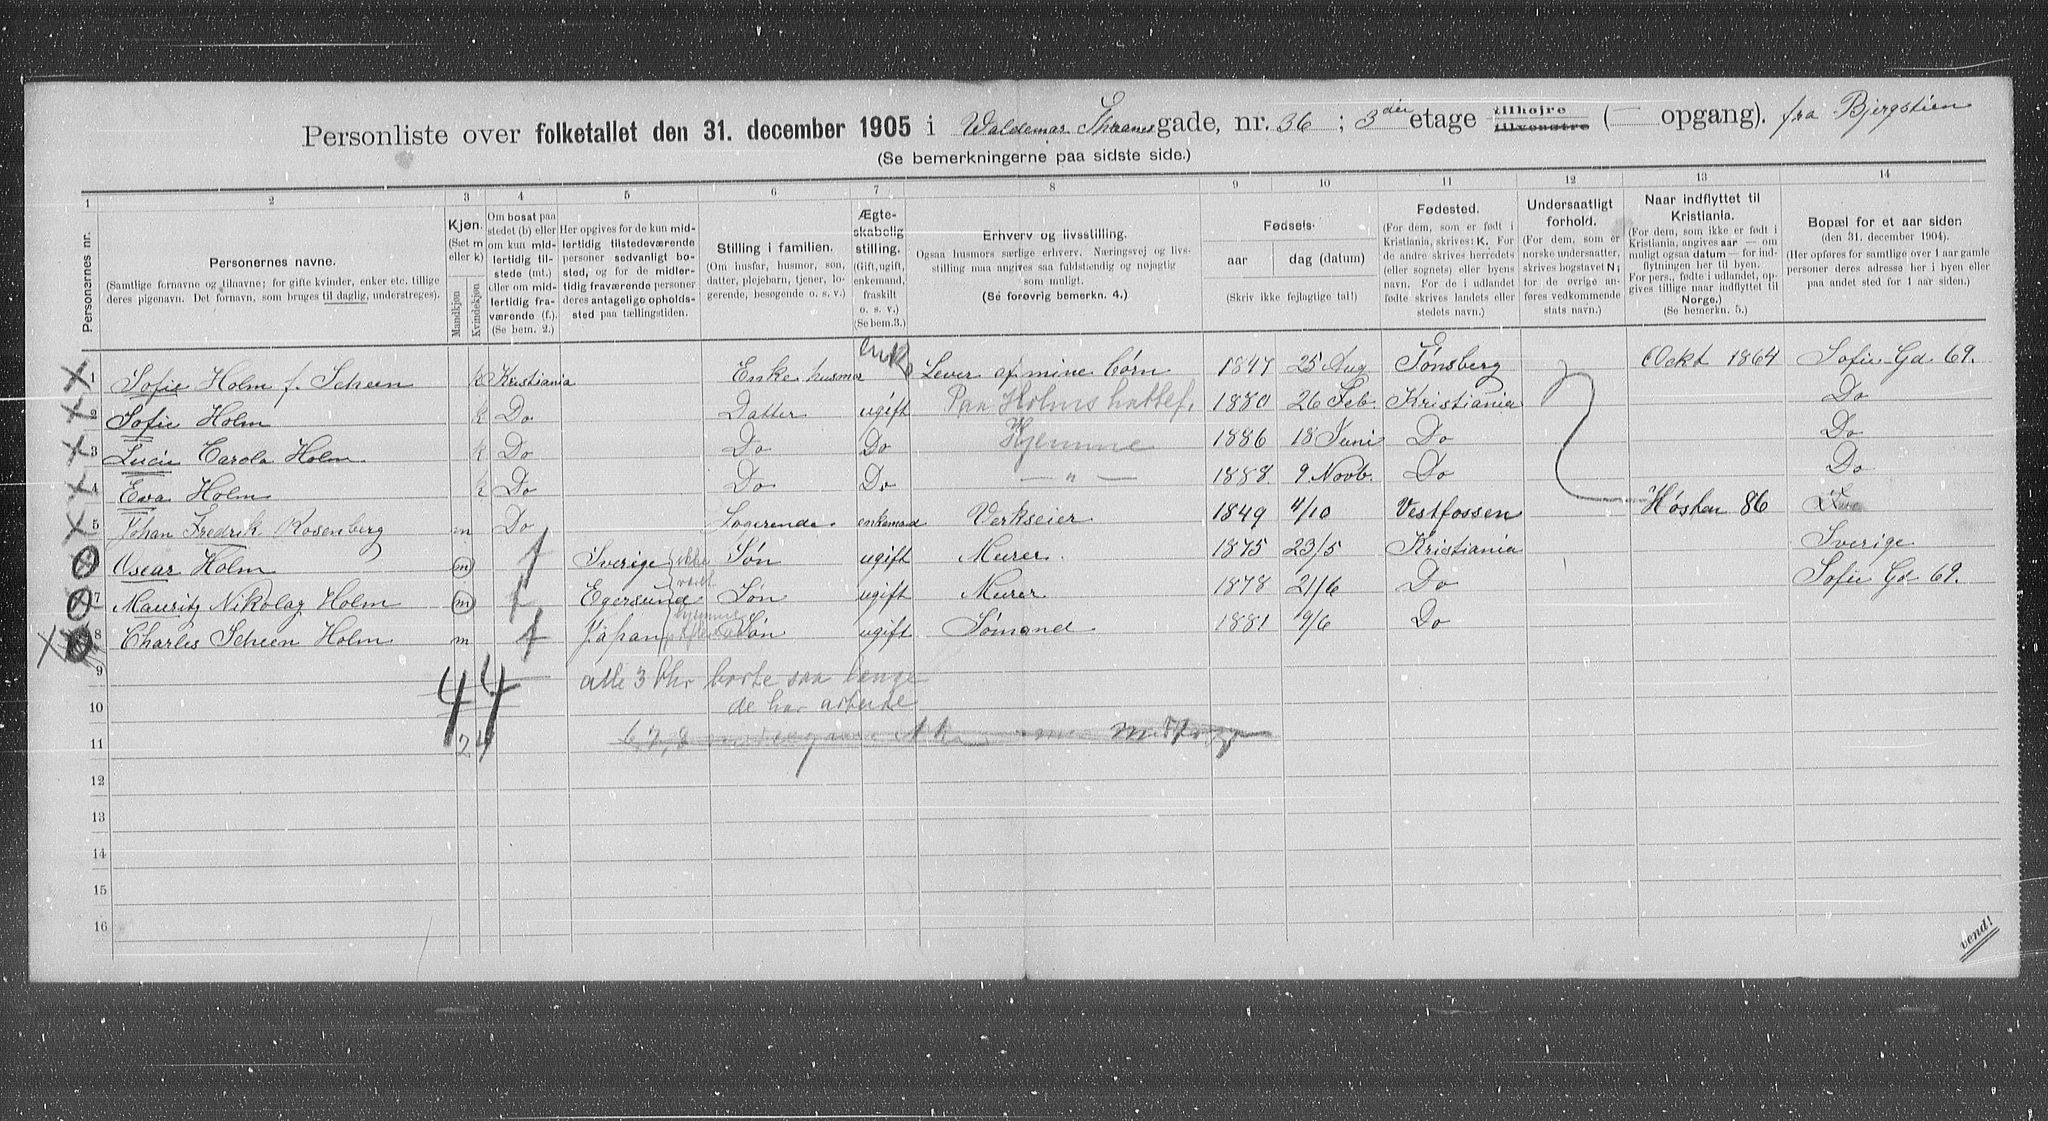 Personliste over folketallet den 31. december 1905 i Waldemar Thranes gade, nr. 36; 3die etage tilhøjre tilvenstre (— opgang). fra Bjergstien
(Se bemerkningerne paa sidste side.)
1 2 3 4 5 6 7 8 9 10 11 12 13 14
Personernes nr.
Personernes navne.
(Samtlige fornavne og tilnavne; for gifte kvinder, enker etc. tillige
deres pigenavn. Det fornavn, som bruges til daglig, understreges).
Kjøn.
(Sæt m
eller k)
Mandkjøn
Kvindekjøn
Om bosat paa
stedet (b) eller
om kun mid-
lertidig til-
stede (mt.)
eller om mid-
lertidig fra-
værende (f.).
(Se bem. 2.)
Her opgives for de kun mid-
lertidig tilstedeværende
personer sedvanlig bo-
sted, og for de midler-
tidig fraværende personer
deres antagelige opholds-
sted paa tællingstiden.
Stilling i familien.
(Om husfar, husmor, søn,
datter, plejebarn, tjener, lo-
gerende, besøgende o. s. v.)
Ægte-
skabelig
stilling.
(Gift, ugift,
enkemand,
fraskilt
o. s. v.)
(Se bem. 3.)
Erhverv og livsstilling.
Ogsaa husmors særlige erhverv. Næringsvej og livs-
stilling maa angives saa fuldstændig og nøjagtig
som muligt.
(Se forøvrig bemerkn. 4.)
Fødsels-
aar dag (datum)
(Skriv ikke fejlagtige tal!)
Fødested.
(For dem, som er født i
Kristiania, skrives: K. For
de andre skrives herredets
(eller sognets) eller byens
navn. For de i udlandet
fødte skrives landets eller
stedets navn.)
Undersaatligt
forhold.
(For dem, som er
norske undersatter,
skrives bogstavet N;
for de øvrige an-
føres vedkommende
stats navn.)
Naar indflyttet til
Kristiania.
(For dem, som ikke er født i
Kristiania, angives aar — om
muligt ogsaa datum — for ind-
flytningen her til byen.
For pers., fødte i udlandet, op-
gives tillige naar indflyttet til
Norge.)
(Se bemerkn. 5.)
Bopæl for et aar siden
(den 31. december 1904).
(Her opføres for samtlige over 1 aar gamle
personer deres adresse her i byen eller
paa andet sted for 1 aar siden.)
1 Sofie Holm f. Scheen k Kristiania Enke husmor enke Lever af mine børn 1847 25 Aug Tønsberg Ockt 1864 Sofie Gd 69.
2 Sofie Holm k Do Datter ugift Paa Holms hattef. 1880 26 Feb. Kristiania Do
3 Lucie Carola Holm k Do Do Do Hjemme 1886 18 Juni Do Do
4 Eva Holm k Do Do Do — " — 1888 9 Novb. Do Do
5 Johan Fredrik Rosenberg m Do Logerende enkemand Verkseier 1849 4/10 Vestfossen Høsten 86
6 Oscar Holm m f Sverige Søn ugift Murer. 1875 23/5 Kristiania Sverige
7 Mauritz Nikolay Holm m f Egersund Søn ugift Murer 1878 21/6 Do Sofie Gd 69.
8 Charles Scheen Holm m f Japan Søn ugift Sømand 1881 9/6 Do
ikke
været
hjemme
9 alle 3 borte saa længe
10 de har arbeide
44
11 24 6, 7, 8
12
13
14
15
16
vend!